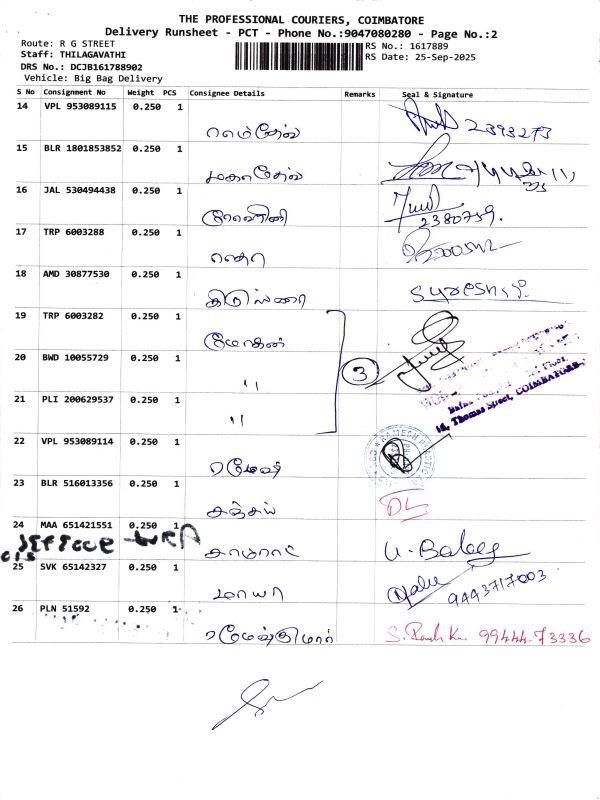 THE PROFESSIONAL COURIERS, COIMBATORE
Delivery Runsheet - PCT - Phone No.:9047080280 - Page No.:2
Route: R G STREET
RS No.: 1617889
Staff: THILAGAVATHI
RS Date: 25-Sep-2025
DRS No.: DCJB161788902
Vehicle: Big Bag Delivery
S No Consignment No Weight PCS Consignee Details Remarks Seal & Signature
14 VPL 953089115 0.250 1 2393273
15 BLR 1801853852 0.250 1
16 JAL 530494438 0.250 1 2380759.
17 TRP 6003288 0.250 1
18 AMD 30877530 0.250 1 Suresh
19 TRP 6003282 0.250 1 மோகன்
20 BWD 10055729 0.250 1 " 3
21 PLI 200629537 1 0.250 "
16, Thomas Street, COIMBATORE
22 VPL 953089114 0.250 1 ரமேஷ்
23 BLR 516013356 0.250 1 சஞ்சய்
24 MAA 651421551 0.250 1 U. Balaji
25 SVK 65142327 0.250 1 மாயா 9443717003
26 PLN 51592 0.250 1 ரமேஷ்குமார் 99444-73336